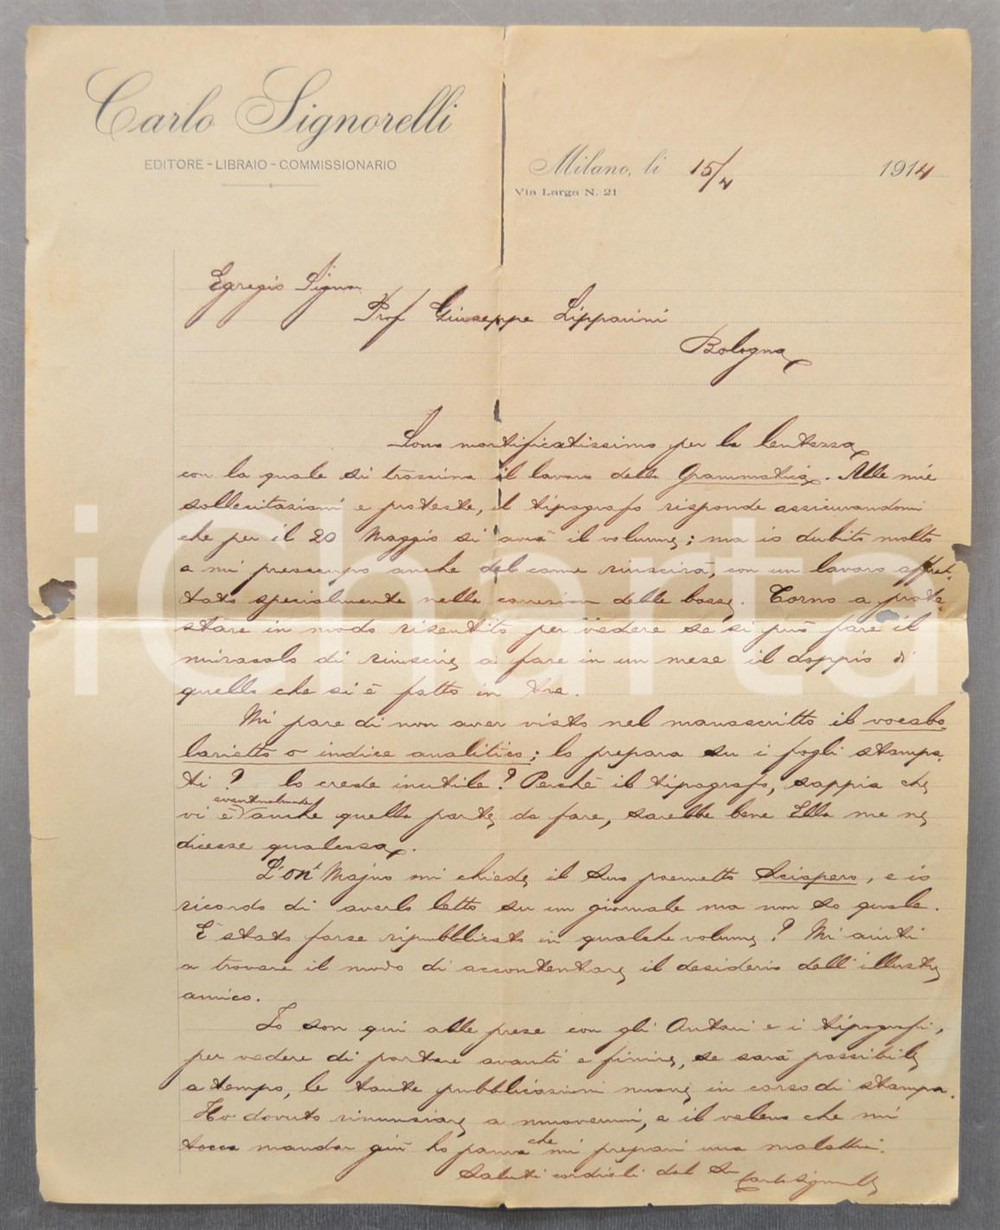 Carlo Signorelli
EDITORE - LIBRAIO - COMMISSIONARIO
Milano, li 15/4 1914
Via Larga N. 21
Egregio Signor
Prof Giuseppe Lipparini
Bologna
Sono mortificatissimo per la lentezza
con la quale si trascina il lavoro della Grammatica. Alle mie
sollecitazioni e proteste, il tipografo risponde assicurandomi
che per il 20 Maggio si avrà il volume; ma io dubito molto
e mi preoccupo anche del come riuscirà, con un lavoro affret-
tato specialmente nella correzione delle bozze. Torno a prote-
stare in modo risentito per vedere se si può fare il
miracolo di riuscire a fare in un mese il doppio di
quello che si è fatto in tre.
Mi pare di non aver visto nel manoscritto il vocabo-
larietto o indice analitico; lo prepara su i fogli stampa-
ti? lo crede inutile? Perchè il tipografo, sappia che
vi è eventualmente anche quella parte da fare, sarebbe bene Ella me ne
dicesse qualcosa.
L'on. Majno mi chiede il Suo poemetto Sciopero, e io
ricordo di averlo letto su un giornale ma non so quale.
È stato forse ripubblicato in qualche volume? Mi aiuti
a trovare il modo di accontentare il desiderio dell'illustre
amico.
Io son qui alle prese con gli Autori e i tipografi,
per vedere di portare avanti e finire, se sarà possibile
a tempo, le tante pubblicazioni nuove in corso di stampa.
Ho dovuto rinunziare a muovermi, e il veleno che mi
tocca mandar giù ho paura che mi prepari una malattia.
Saluti cordiali dal Suo
Carlo Signorelli
iCharta